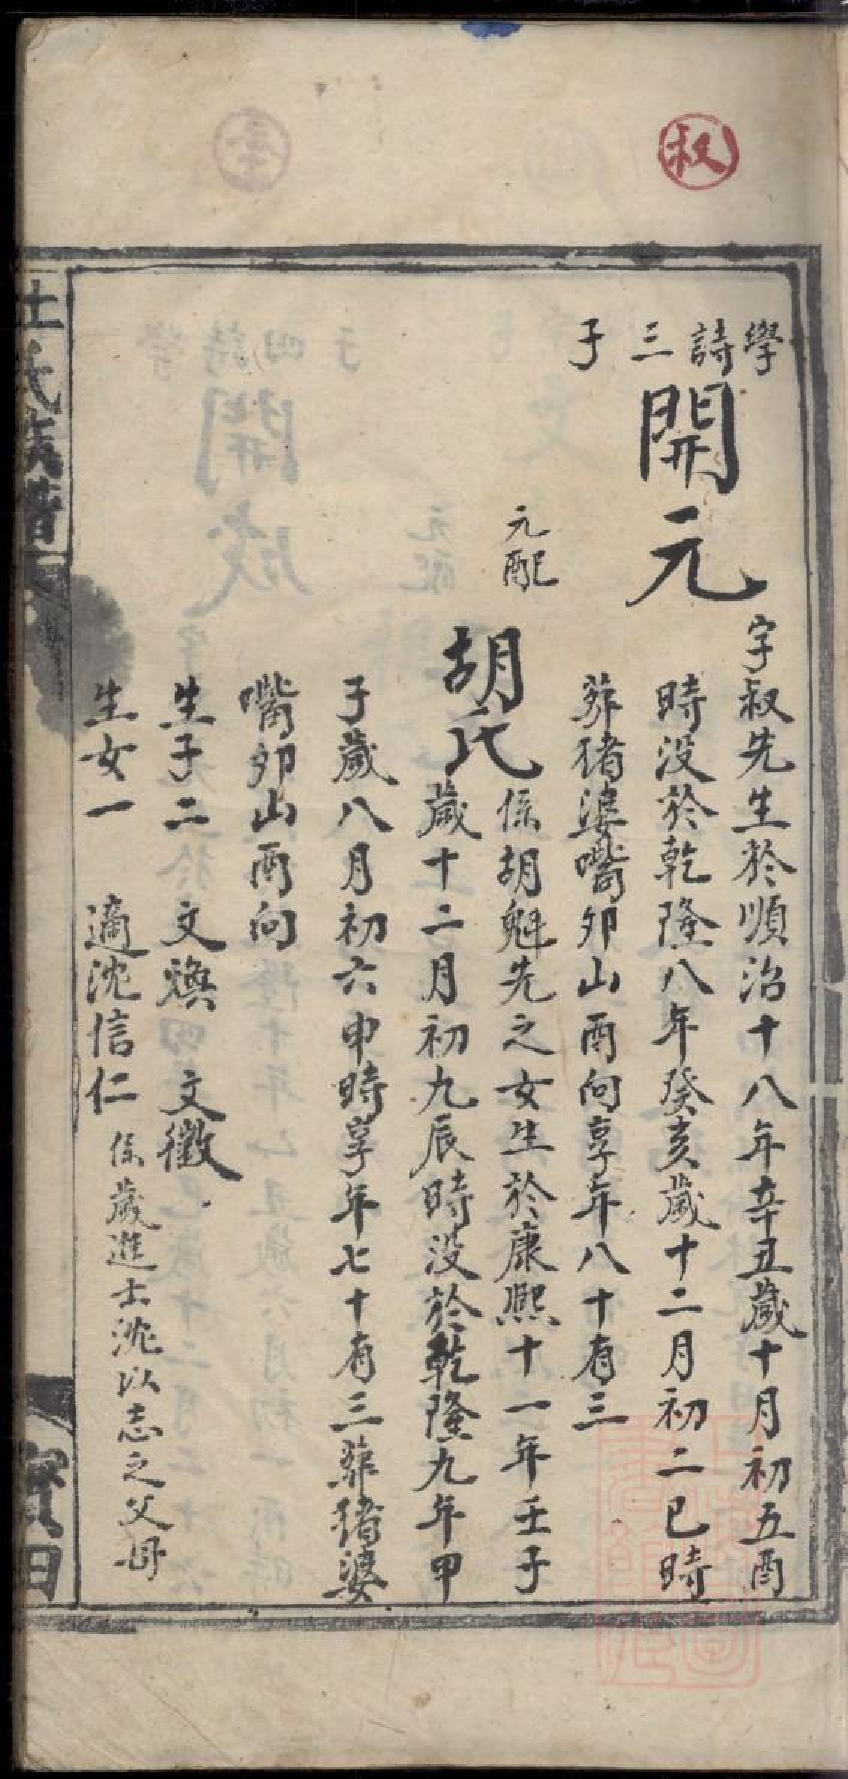 叔
學詩三子
開元
字叔先生於順治十八年辛丑歲十月初五酉
時没於乾隆八年癸亥歲十二月初二巳時
葬猪婆嘴夘山酉向享年八十有三
元配
胡氏
係胡魁先之女生於康熙十一年壬子
歲十二月初九辰時没於乾隆九年甲
子歲八月初六申時享年七十有三葬猪婆
嘴夘山酉向
生子二 文煥 文徵
生女一 適沈信仁 係歲進士沈以志之父母
氏族譜
實田